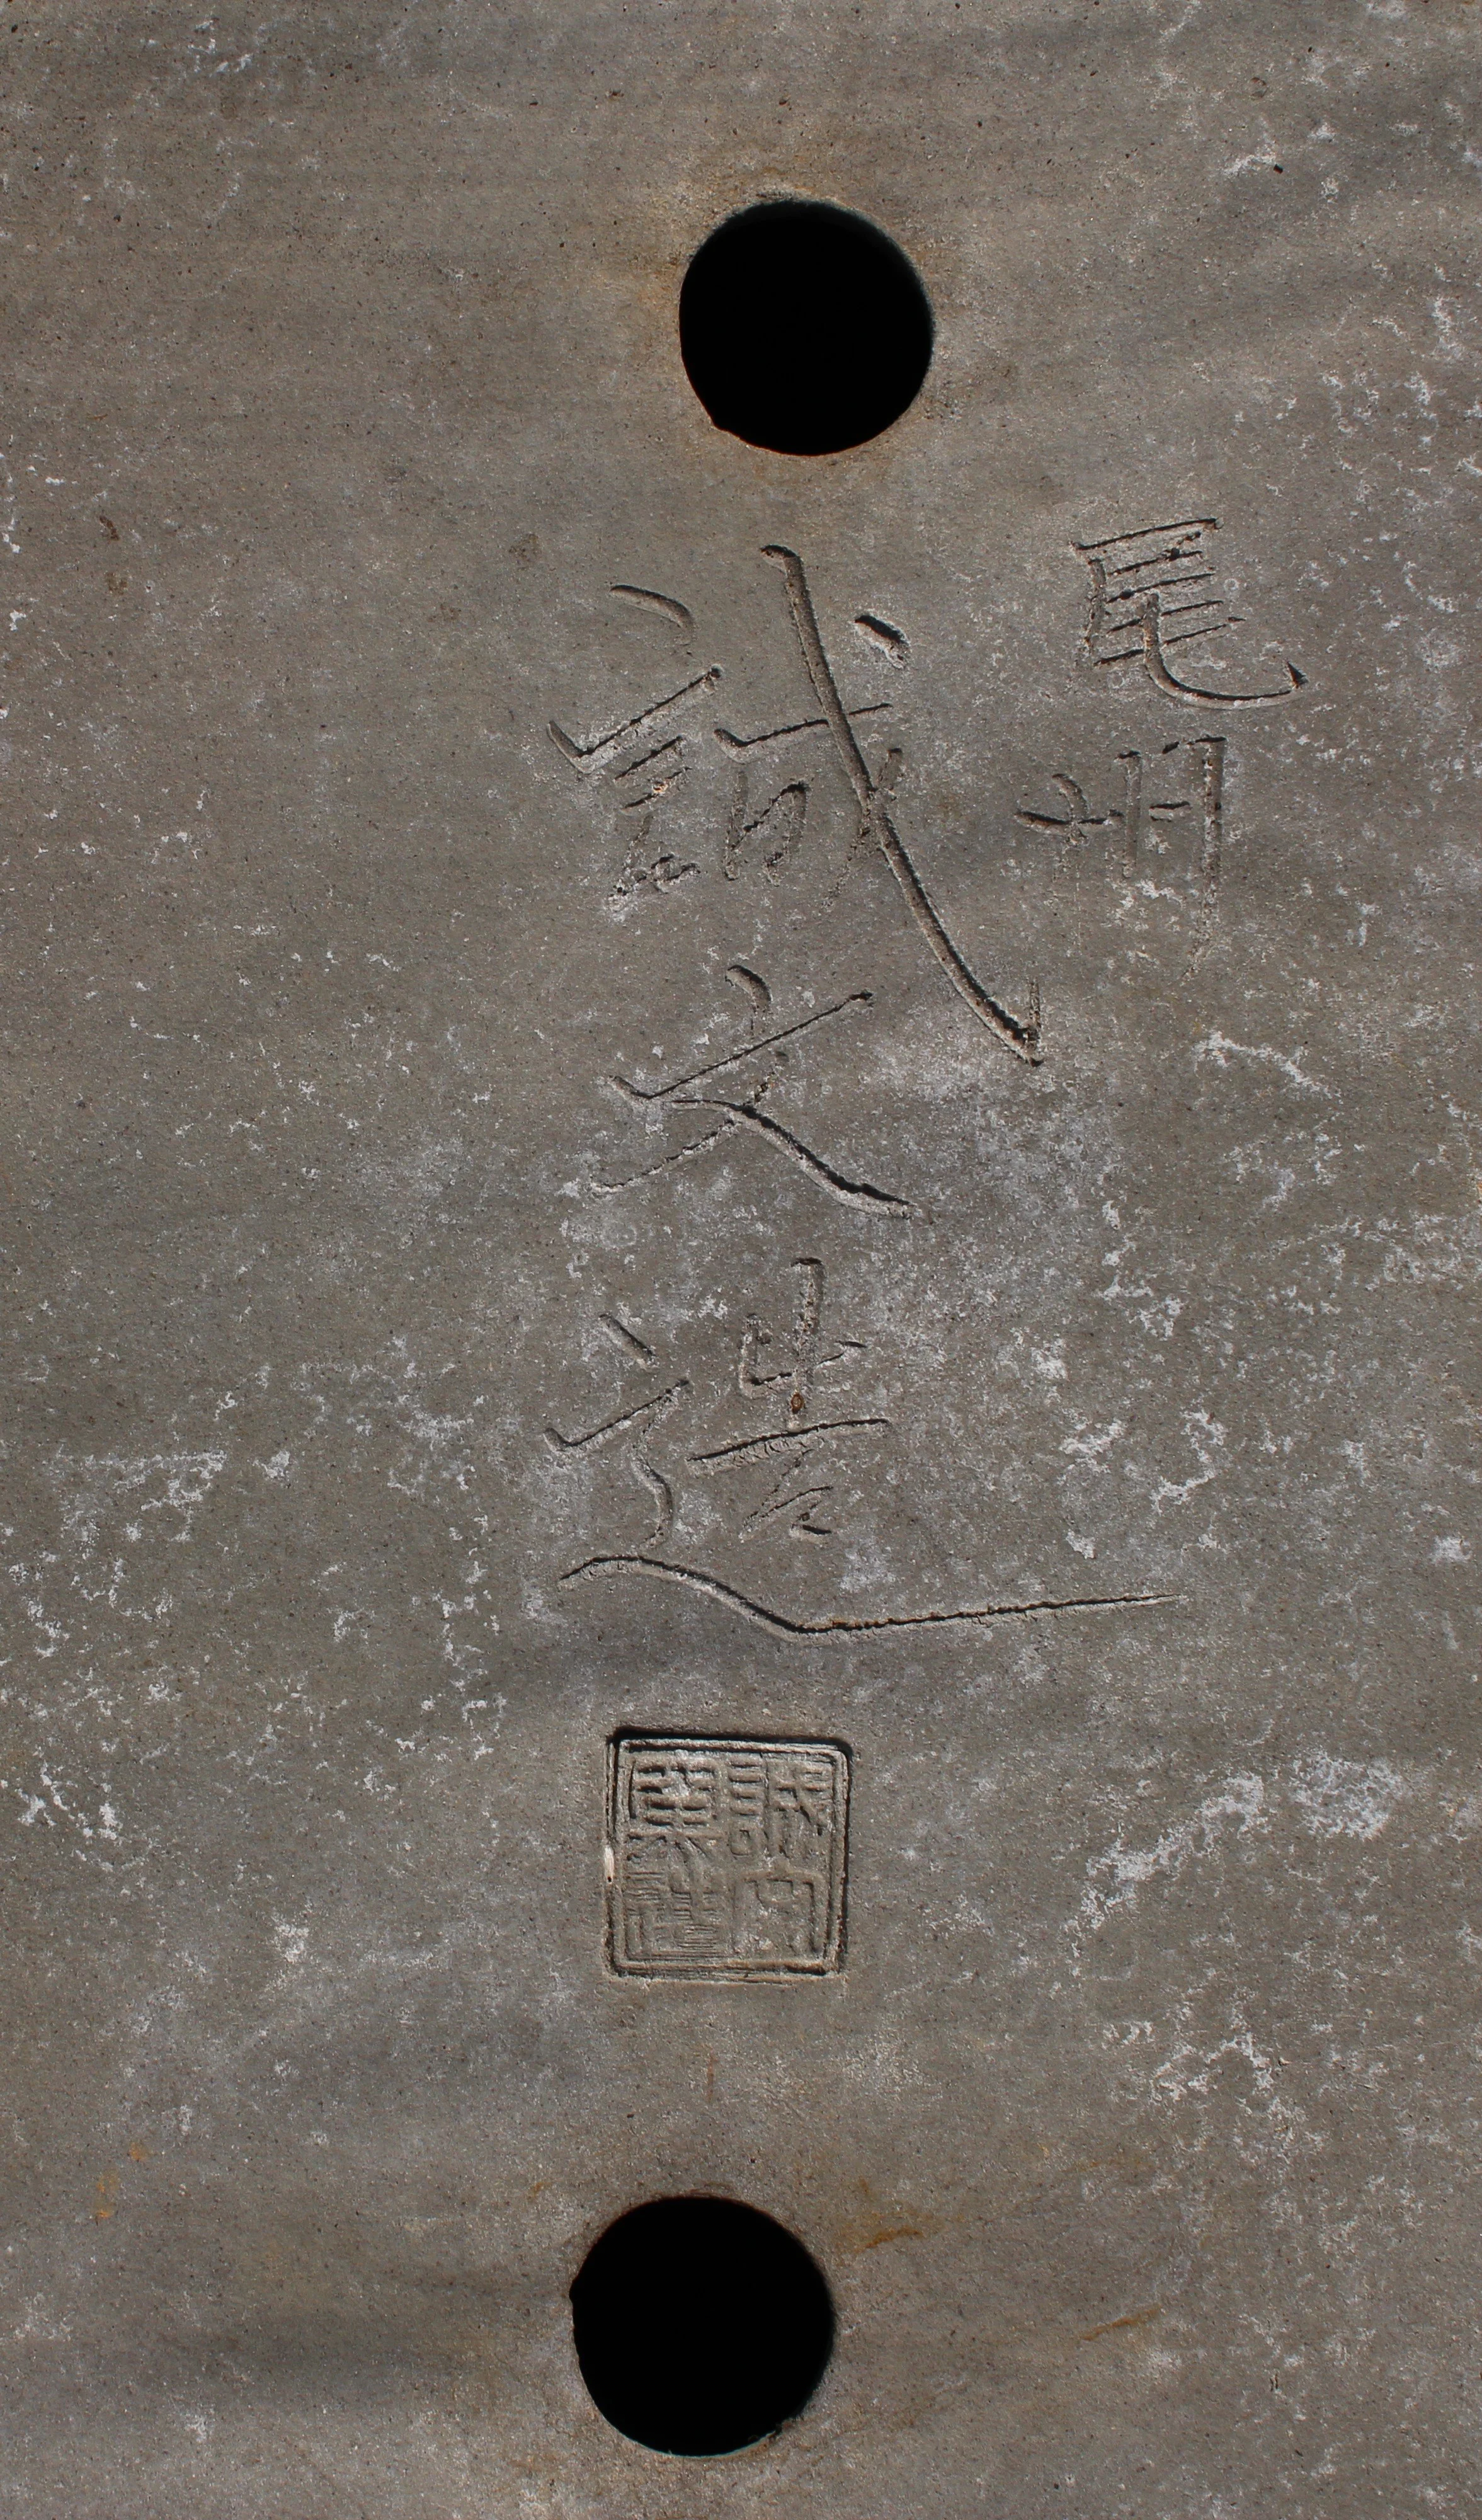 尾州
誠文造